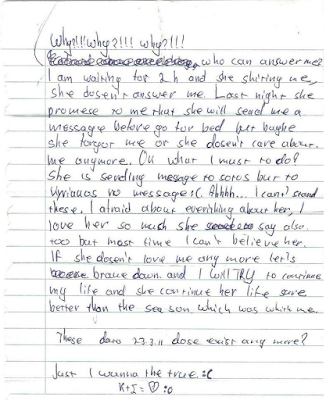 Why!!! Why?!!! Why?!!!
who can answer me?
I am waiting for 2h and she shiring me,
she doesn't answer me. Last night she
promese to me that she will send me a
message before go for bed but
she forgot me or she doesn't care about
me anymore. Oh what I must to do?
She is sending message to but to
no message :(. Ahhhh... I can't stand
these. I afraid about everithing about her, I
love her so much she say also
too but most time I can't believe her.
If she doesn't love me any more let's
brawe down. and I will TRY to continue
my life and she continue her life sure
better than the sea son which was with me.
These date 23.3.11 dose exist any more?
Just I wanna the true :(
K+I=♡ :o